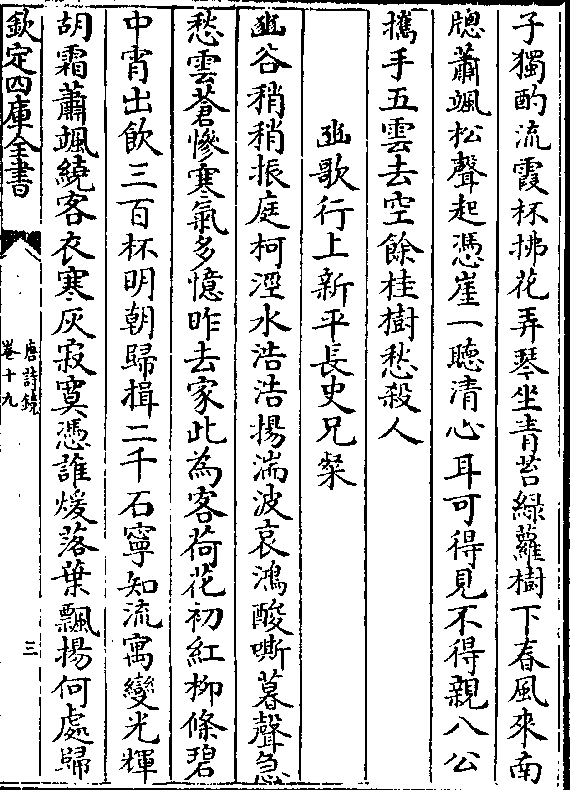 子獨酌流霞杯拂花弄琴坐青苔綠蘿樹下春風來南
牕蕭颯松聲起憑崖一聽清心耳可得見不得親八公
攜手五雲去空餘桂樹愁殺人
豳歌行上新平長史兄粲
豳谷稍稍振庭柯涇水浩浩揚湍波哀鴻酸嘶暮聲急
愁雲蒼慘寒氣多憶昨去家此為客荷花初紅柳條碧
中宵出飲三百杯明朝歸揖二千石寧知流寓變光輝
胡霜蕭颯繞客衣寒灰寂寞憑誰煖落葉飄揚何處歸
欽定四庫全書
唐詩鏡
卷十九
三